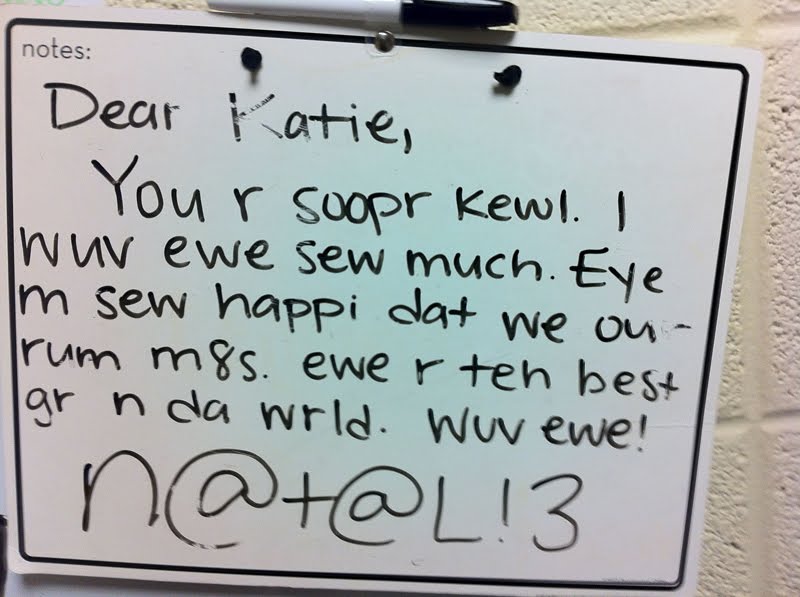 notes:
Dear Katie,
You r soopr kewl. I
wuv ewe sew much. Eye
m sew happi dat we ou-
rum m8s. ewe r teh best
gr n da wrld. Wuv ewe!
n@t@L!3